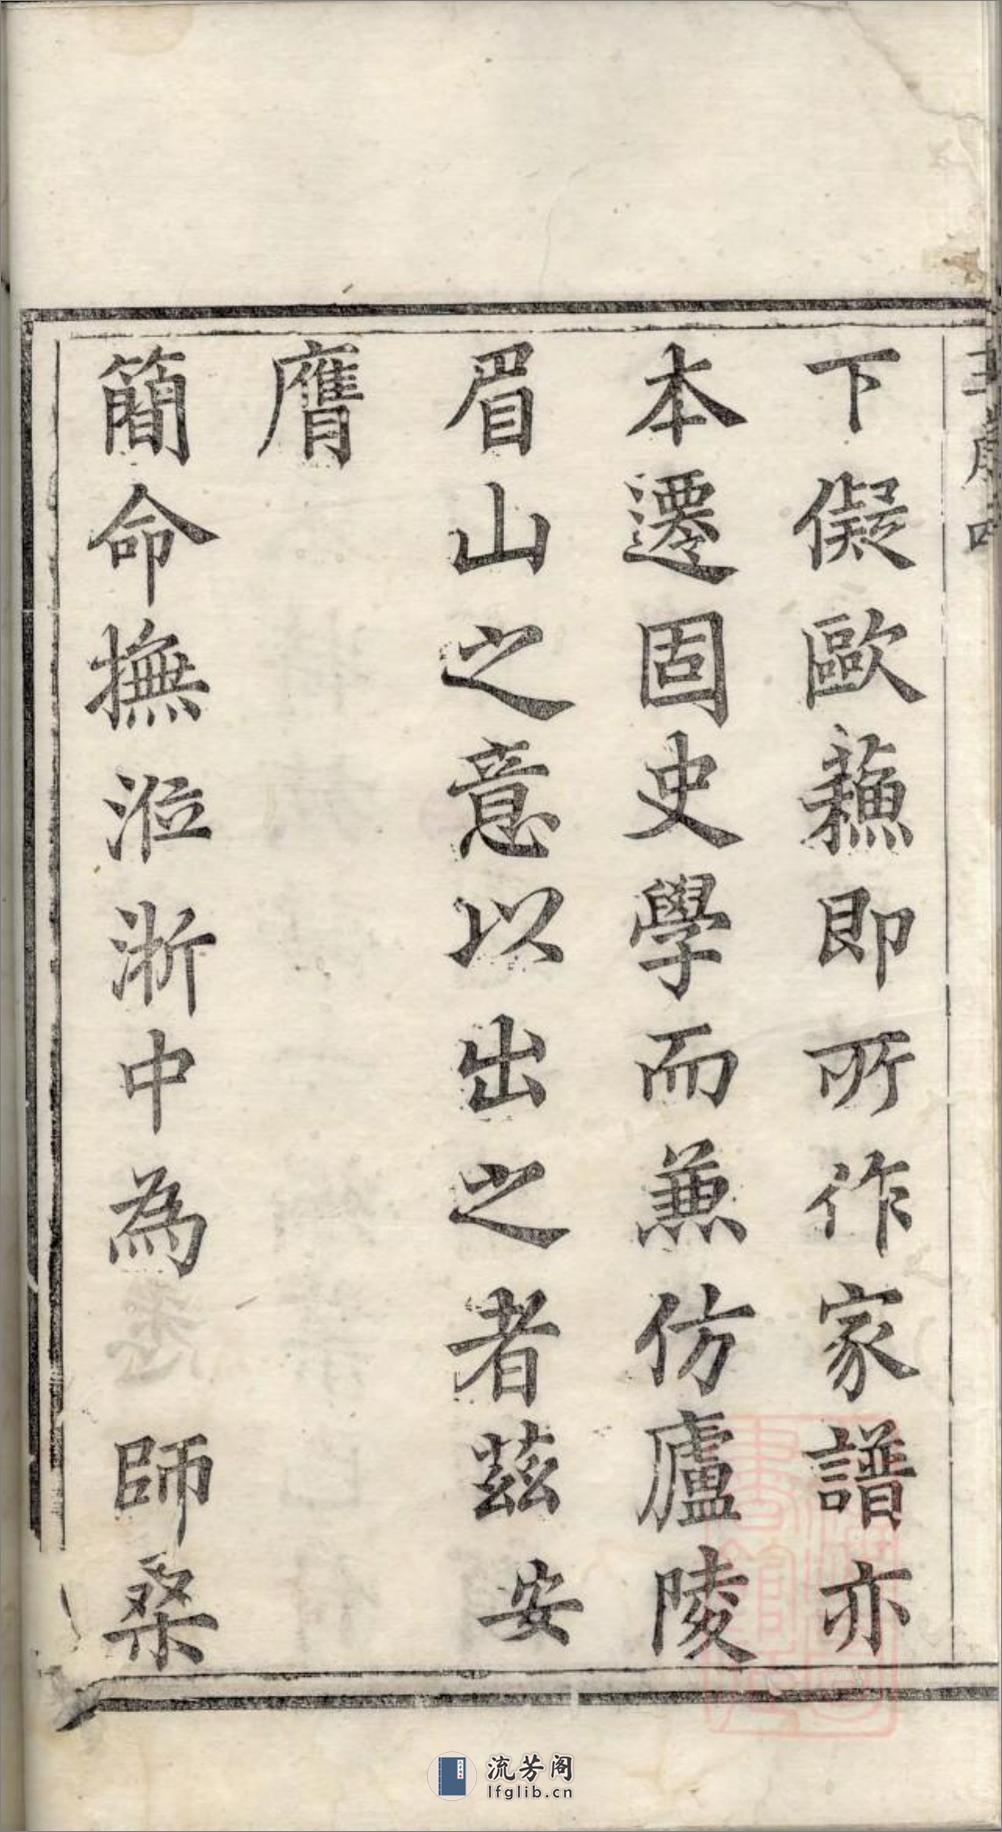 下儗歐蘓即所作家譜亦
本遷固史學而兼仿廬陵
眉山之意以出之者茲安
膺
簡命撫涖浙中為師桑
流芳阁
lfglib.cn